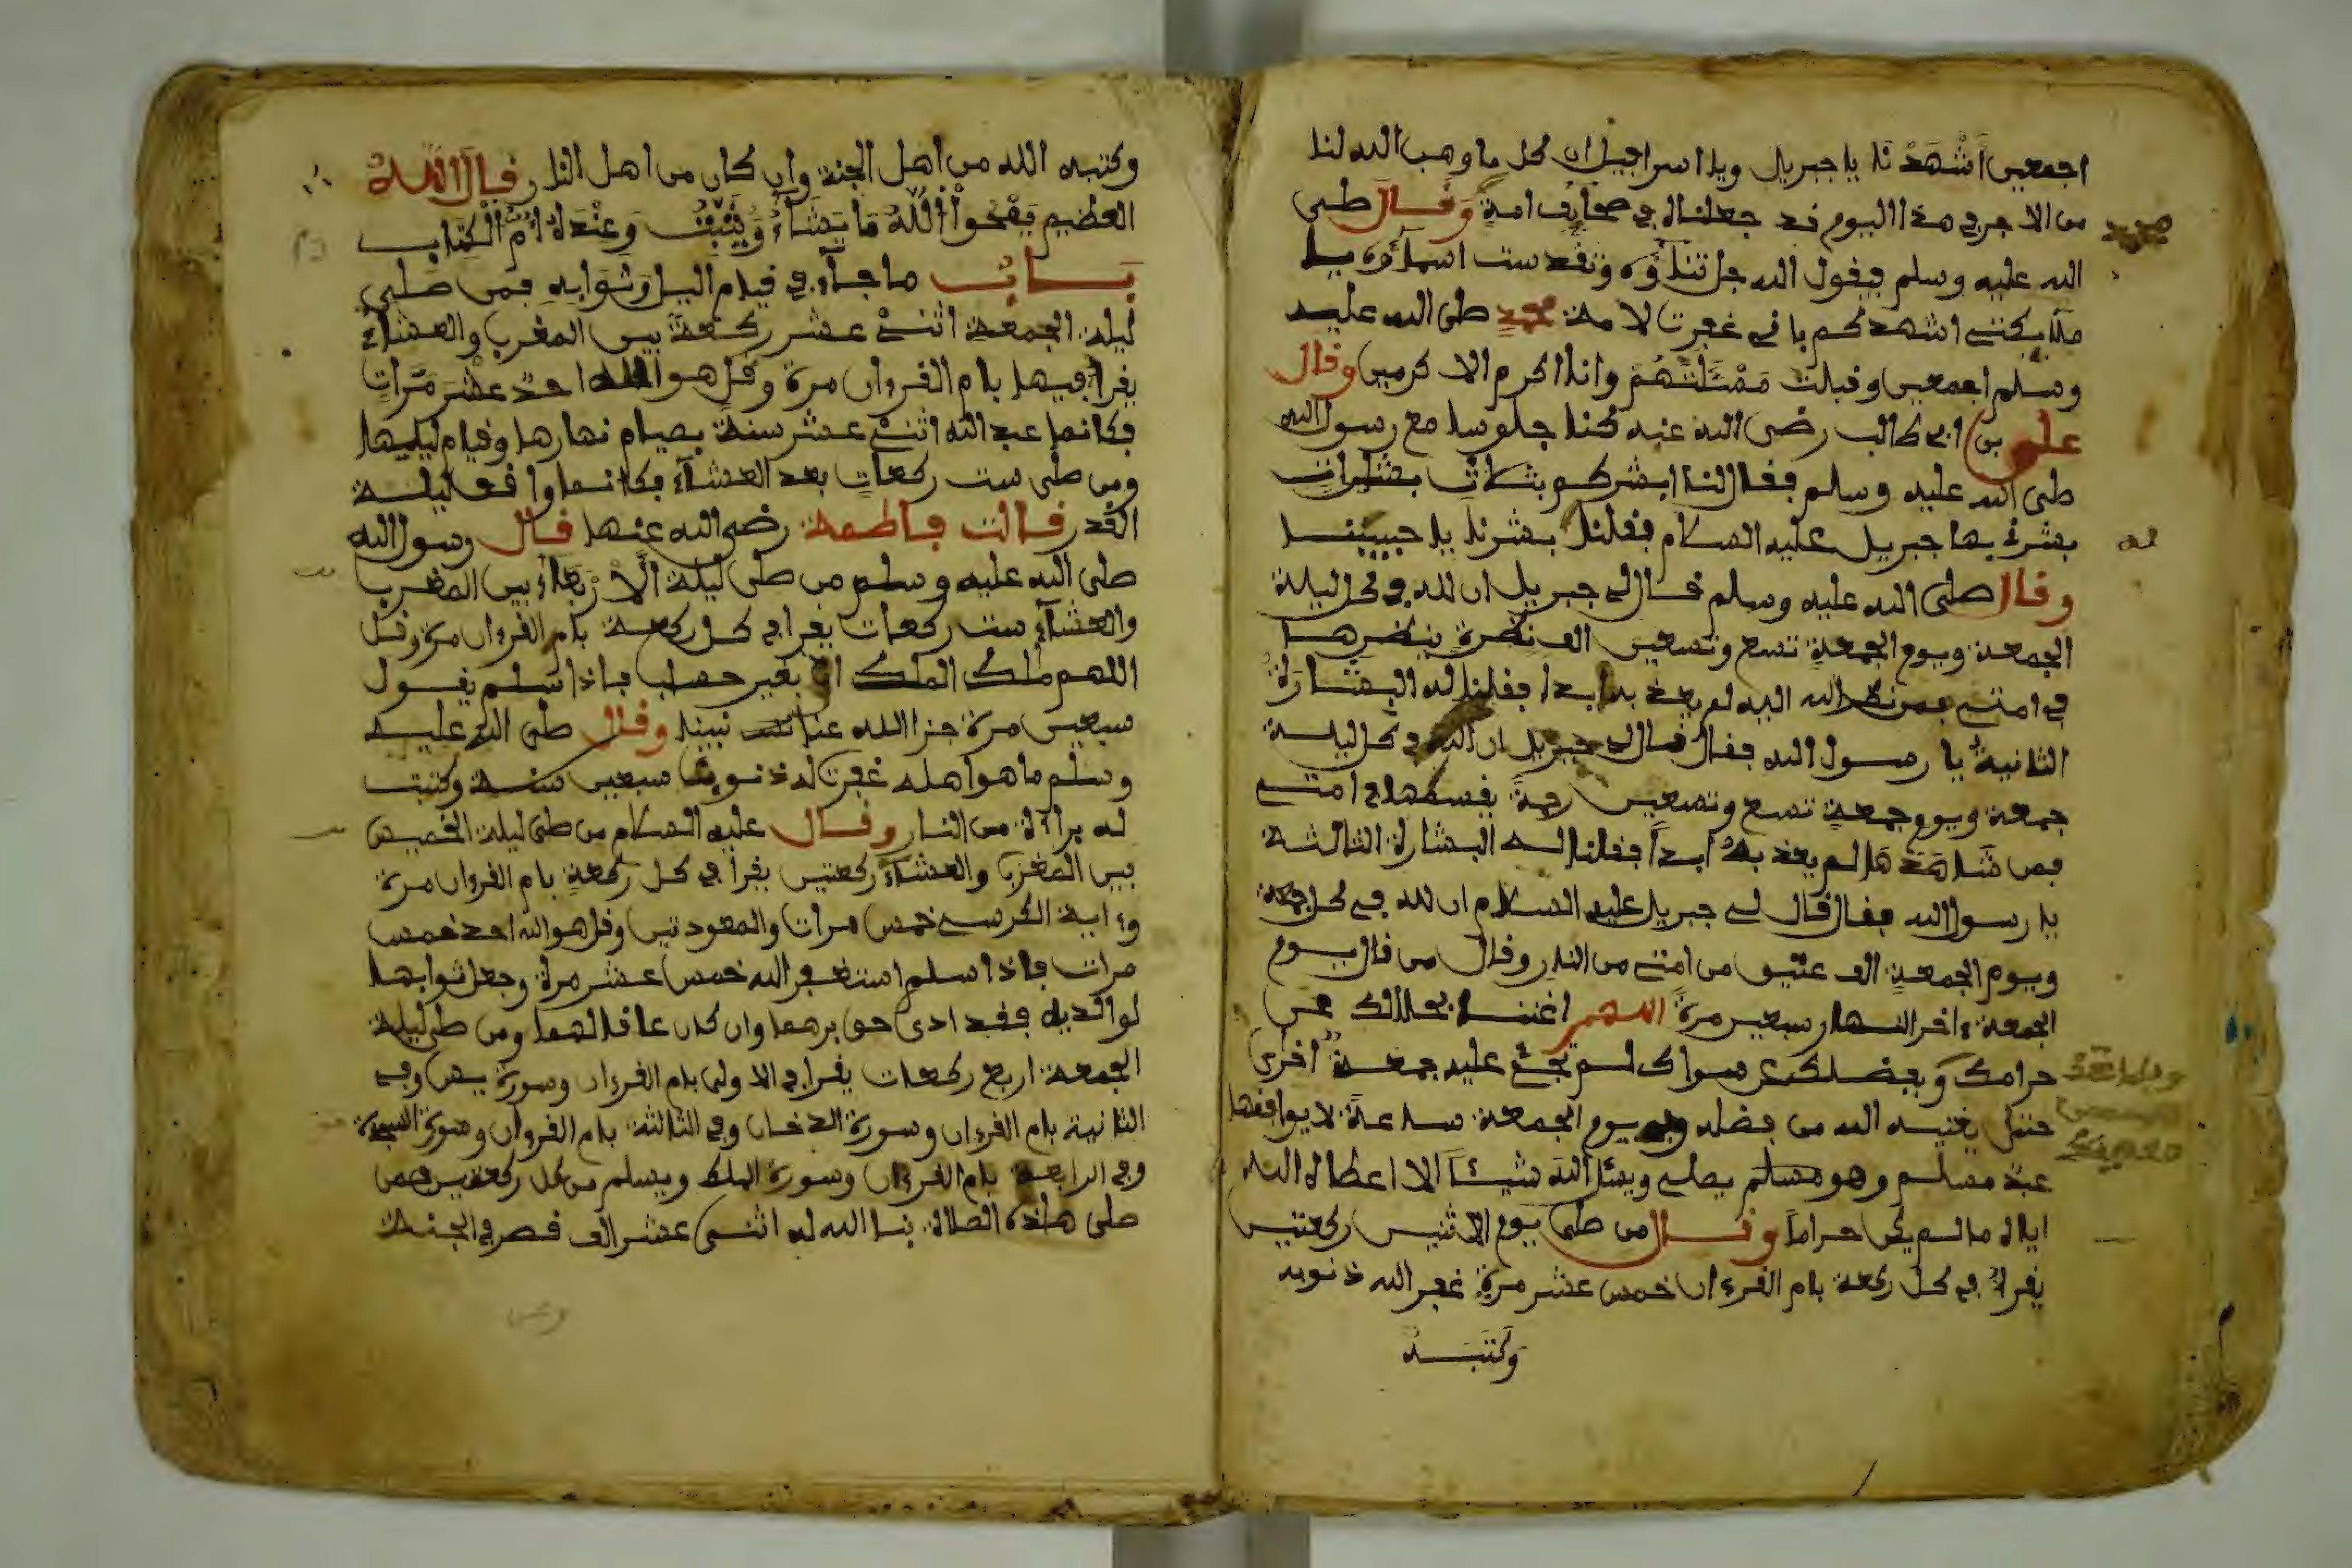 اجمعين اشهدنا يا جبريل ويا اسرافيل ان كل ما وهب الله لنا
من الاجر في هذا اليوم قد جعلناه في صحايف امة وقال صلى
الله عليه وسلم فيقول الله جل ثناؤه وتقدست اسماؤه يا
ملائكتي اشهدكم باني غفرت لامة محمد صلى الله عليه
وسلم اجمعين وقبلت مسئلتهم وانا اكرم الاكرمين وقال
علي بن ابي طالب رضي الله عنه كنا جلوسا مع رسول الله
صلى الله عليه وسلم فقال لنا ابشركم بثلاث بشارات
بشرني بها جبريل عليه السلام فقلنا بشرنا يا حبيبنا
وقال صلى الله عليه وسلم قال لي جبريل ان لله في كل ليلة
الجمعة ويوم الجمعة تسع وتسعين الف نظرة ينظرها
في امتي فمن نظر الله اليه لم يعذبه ابدا فقلنا له البشارة
الثانية يا رسول الله فقال قال لي جبريل ان لله في كل ليلة
جمعة ويوم جمعة تسع وتسعين رحمة يقسمها في امتي
فمن شاهدها لم يعذبه ابدا فقلنا له البشارة الثالثة
يا رسول الله فقال قال لي جبريل عليه السلام ان لله في كل جمعة
ويوم الجمعة الف عتيق من امتي من النار وقال من قال يوم
الجمعة ءاخر النهار سبعين مرة اللهم اغننا بحلالك عن
حرامك وبفضلك عن سواك لم تجئ عليه جمعة اخرى
حتى يغنيه الله من فضله وفي يوم الجمعة ساعة لا يوافقها
عبد مسلم وهو مسلم يصلي ويسئل الله شيئا الا اعطاه الله
اياه ما لم يكن حراما وقال من صلى يوم الاثنين ركعتين
يقرأ في كل ركعة بام القرءان خمس عشر مرة غفر الله ذنوبه
وكتبه
وكتبه الله من اهل الجنة وان كان من اهل النار قال الله
العظيم يمحوا الله ما يشاء ويثبت وعنده ام الكتاب
باب ما جاء في قيام اليل وثوابه فمن صلى
ليلة الجمعة اثني عشر ركعة بين المغرب والعشاء
يقرأ فيها بام القرءان مرة وقل هو الله احد عشر مرات
فكانما عبد الله اثني عشر سنة بصيام نهارها وقيام ليليها
ومن صلى ست ركعات بعد العشاء فكانما وافق ليلة
القدر قالت فاطمة رضي الله عنها قال رسول الله
صلى الله عليه وسلم من صلى ليلة الاربعاء بين المغرب
والعشاء ست ركعات يقرا في كل ركعة بام القرءان مرة وقل
اللهم ملك الملك الى بغير حساب فاذا سلم يقول
سبعين مرة جزا الله عنا نبينا وقال صلى الله عليه
وسلم ما هو اهله غفرت له ذنوب سبعين سنة وكتبت
له براءة من النار وقال عليه السلام من صلى ليلة الخميس
بين المغرب والعشاء ركعتين يقرأ في كل ركعة بام القرءان مرة
وءاية الكرسي خمس مرات والمعودتين وقل هو الله احد خمس
مرات فاذا سلم استغفر الله خمس عشر مرة وجعل ثوابها
لوالديه فقد ادى حق برهما وان كان عاقا لهما ومن صلى ليلة
الجمعة اربع ركعات يقرا في الاولى بام القرءان وسورة يس وفي
الثانية بام القرءان وسورة الدخان وفي الثالثة بام القرءان وسورة السجدة
وفي الرابعة بام القرءان وسورة الملك ويسلم من كل ركعتين فمن
صلى هاذه الصلاة بنا الله له اثنى عشر الف قصر في الجنة